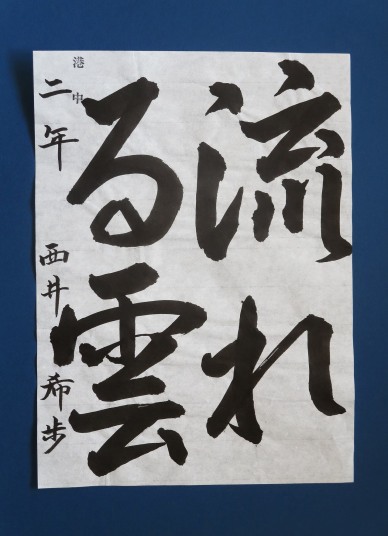 流れ
る雲
港中
二年 西井希歩